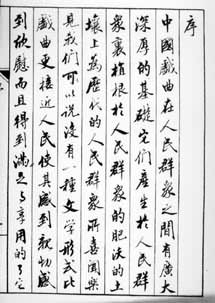 序
中國戲曲在人民群眾之間有廣大
深厚的基礎它们產生於人民群
眾裏植根於人民群眾的肥沃的土
壤上為歷代的人民群眾所喜闻樂
見我们可以说沒有一種文学形式比
戲曲更接近人民使其感到親切感
到欣慰而且得到满足与享用的了它